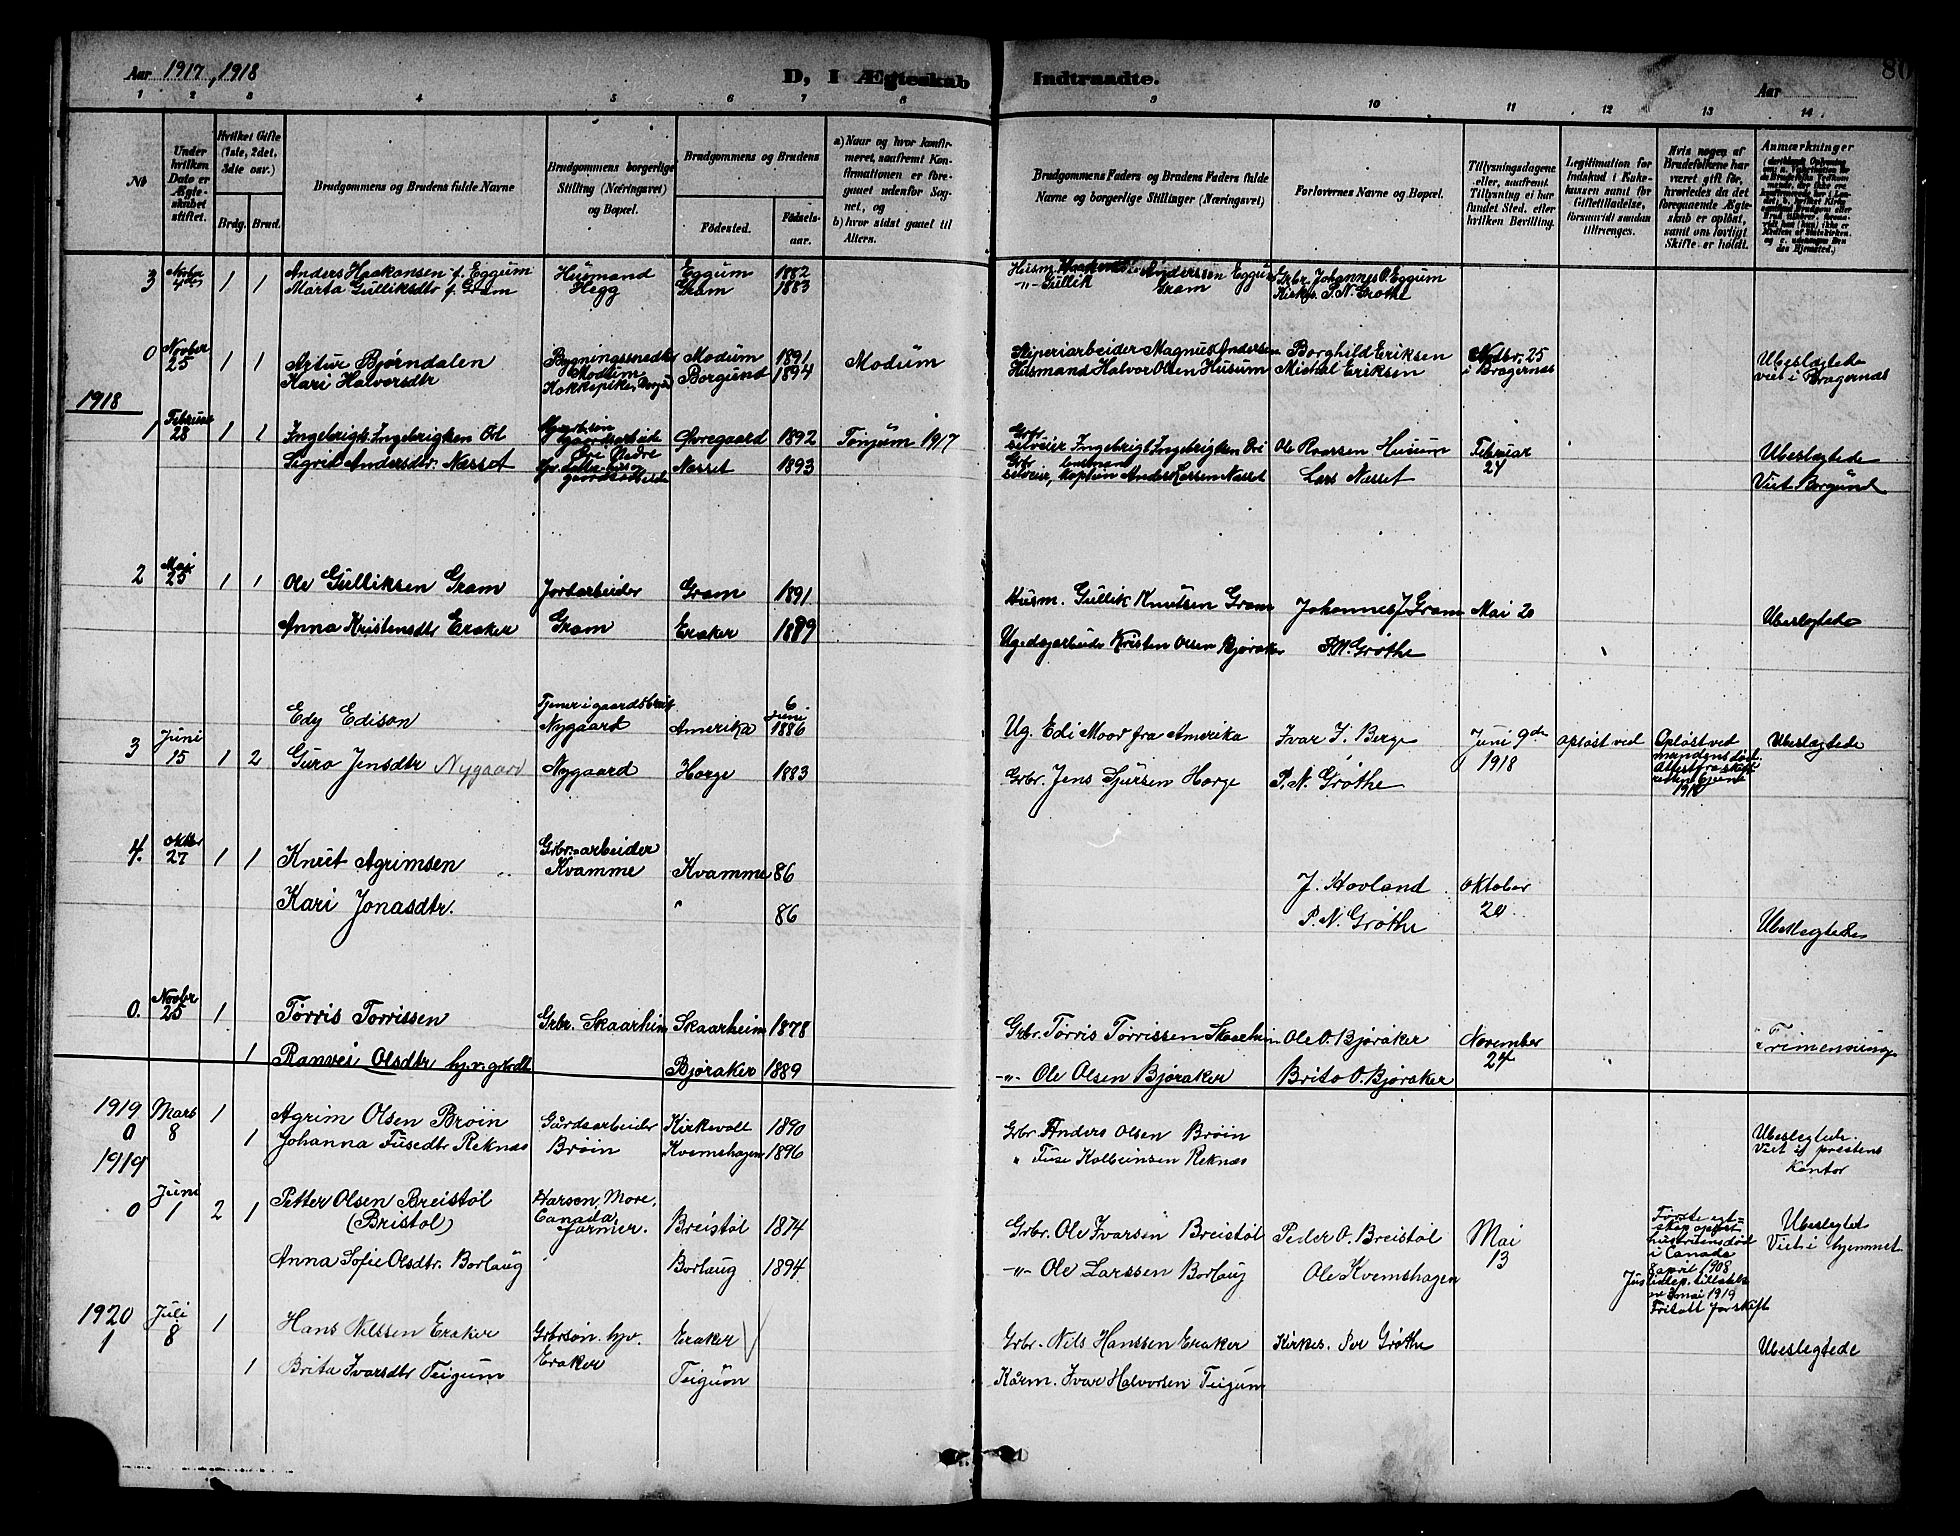 Aar 1917, 1918
D, I Ægteskab
Indtraadte.
Aar
80
1 2 3 4 5 6 7 8 9 10 11 12 13 14
No
Under hvilken Dato er Ægteskabet stiftet.
Hvilket Gifte (1ste, 2det, 3die osv.)
Brdg. Brud.
Brudgommens og Brudens fulde Navne
Brudgommens borgerlige Stilling (Næringsvei) og Bopæl.
Brudgommens og Brudens
Fødested.
Fødselsaar.
a) Naar og hvor konfirmeret, saafremt Konfirmationen er foregaaet udenfor Sognet, og
b) hvor sidst gaaet til Alters.
Brudgommens Faders og Brudens Faders fulde Navne og borgerlige Stillinger (Næringsvei)
Forlovernes Navne og Bopæl.
Tillysningsdagene eller, saafremt Tillysning ei har fundet Sted, efter hvilken Bevilling.
Legitimation for Indskud i Enkekassen samt for Giftetilladelse, forsaavidt saadan tiltrænges.
Hvis nogen af Brudefolkene har været gift før, hvorledes da det foregaaende Ægteskab er opløst, samt om lovligt Skifte er holdt.
Anmærkninger
3 Novbr 4de 1 1 Anders Haakonsen f. Eggum Husmand Eggum 1882 Husm. Anderssen Eggum Grbr. Johannes O. Eggum
Marta Gulliksdtr f. Gram Hegg Gram 1883 -"- Gullik Gram Kirkes. P. N. Grøthe
0 Novber 25 1 1 Artur Bjørndalen Bygningssnedker Modum Modum 1891 Modum Sliperiarbeider Magnus Andersen Borghild Eriksen Novbr. 25 i Bragernes Ubeslægtede
Kari Halversdtr Kokkepike, Borgund 1894 Husmand Halvor Olsen Husum Michal Eriksen viet i Bragernæs
1918
1 Februar 28 1 1 Ingebrigt Ingebrigtsen Øvregaard 1892 Tønjum 1917 Ingebrigt Ole Husum Februar 24 Ubeslægtede
Sigrid Andersdtr. Næsset Næsset 1893 Anders Larsen Næsset Lars Næsset Viet Borgund
2 Mai 25 1 1 Ole Gulliksen Gram Jordarbeider Gram 1891 Husm. Gullik Knutsen Gram Johannes J. Gram Mai 20 Ubeslegtede
Anna Kristensdtr Eraker Gram Eraker 1889 Kristen Olsen Bjøraker P. N. Grøthe
Edy Edison Tjener i gaardsbruk Nygaard Amerika 6 juni 1886 Ug. Edi Moor fra Amerika Ivar I. Berge Juni 9de 1918 opløst ved Opløst ved mandens død. 1918 Ubeslægtede
3 Juni 15 1 2 Guro Jensdtr Nygaard Nygaard Horge 1883 Grbr. Jens Sjursen Horge P. N. Grøthe
4. Oktbr 27 1 1 Knut Agrimsen Grbr. arbeider Kvamme Kvamme 86 J. Hovland Oktober 20
Kari Jonasdtr. " 86 P. N. Grøthe Ubeslegtede
0. Novbr 25 1 Tørris Torrissen Grbr. Skaarheim Skaarheim 1878 Grbr. Tørris Tørrissen Skaarheim Ole O. Bjøraker November 24 Trimenninge
1 Ranvei Olsdtr Bjøraker 1889 -"- Ole Olsen Bjøraker Brita O. Bjøraker
1919 0 Mars 8 1 Agrim Olsen Brøin Gårdsarbeider Kirkevolt 1890 Grbr. Anders Olsen Brøin Ubeslegtede.
1 Johanna Fusedtr Reknæs Brøin Kvemshagen 1896 " Fuse Kolbeinsen Reknæs Viet på prestens kontor
1919
0 Juni 1 2 1 Petter Olsen Breistøl (Bristol) Canada farmer. Breistøl 1874 Grbr. Ole Ivarsen Breistøl Peder O. Breistøl Mai 13 Første egteskap opløst hustruens død i Canada 8 april 1908 mai 1919 Fritatt for skift Ubeslegtet Viet i hjemmet
Anna Sofie Olsdtr. Borlaug Borlaug 1894 -"- Ole Larssen Borlaug Ole Kvemshagen
1920 1 Juli 8 1 Hans Nilssen Eraker Grbrsøn. hjv. Eraker Eraker Grbr. Nils Hanssen Eraker Kirkes. Per Grøthe Ubeslegtede
1 Brita Ivarsdtr Teigum Teigum Kårm. Ivar Halvorsen Teigum